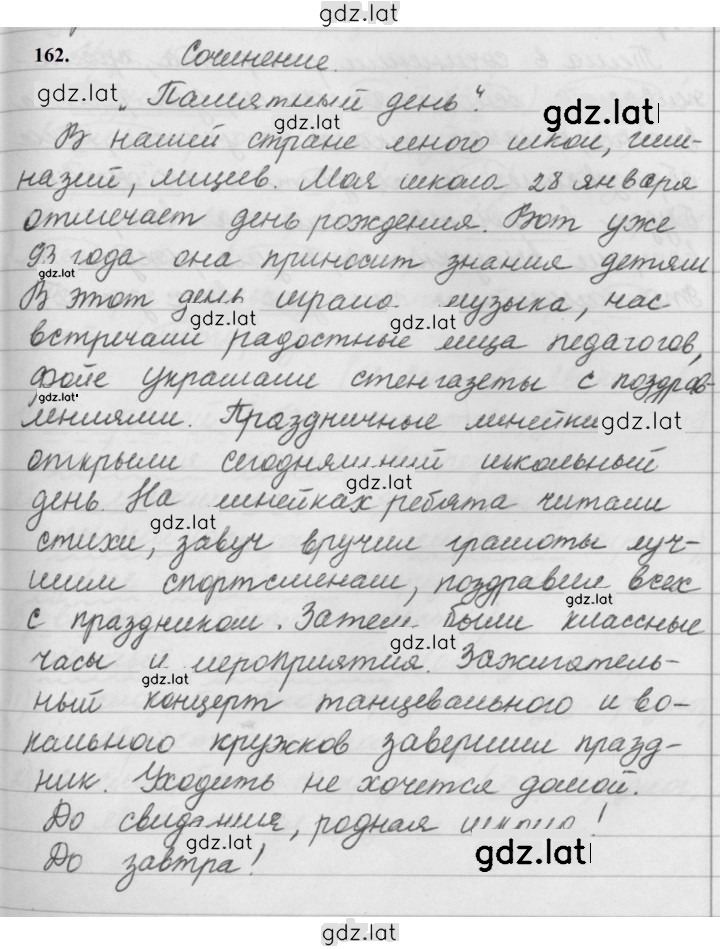 gdz.lat
162. Сочинение.
gdz.lat
„Памятный день".
gdz.lat
gdz.lat
В нашей стране много школ, гим-
назий, лицеев. Моя школа 28 января
отмечает день рождения. Вот уже
93 года она приносит знания детям
gdz.lat
В этот день играла музыка, нас
gdz.lat
встречали радостные лица педагогов,
фойе украшали стенгазеты с поздрав-
gdz.lat
лениями. Праздничные линейки
gdz.lat
открыли сегодняшний школьный
gdz.lat
день. На линейках ребята читали
gdz.lat
стихи, завуч вручил грамоты луч-
шим спортсменам, поздравил всех
gdz.lat
с праздником. Затем были классные
gdz.lat
часы и мероприятия. Зажигатель-
gdz.lat
ный концерт танцевального и во-
кального кружков завершил празд-
ник. Уходить не хочется домой.
До свидания, родная школа!
gdz.lat
До завтра!
gdz.lat
gdz.lat